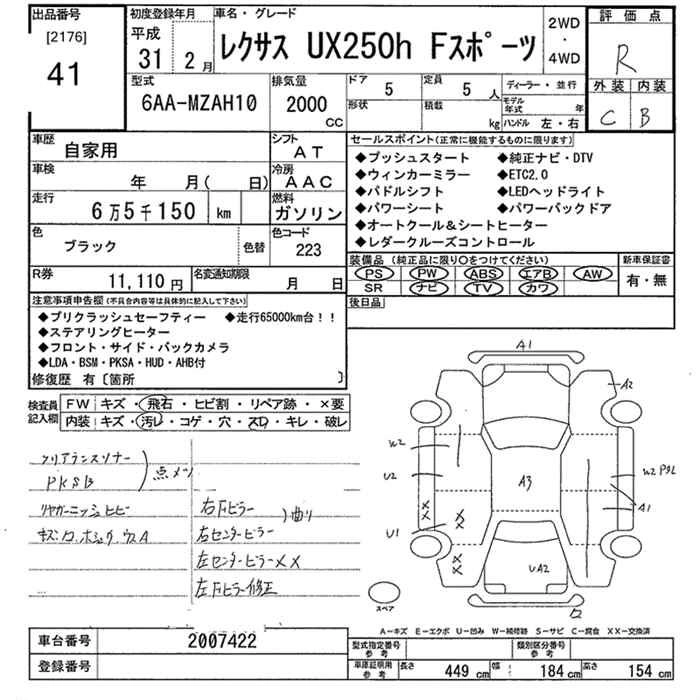 出品番号
[2176]
41
初度登録年月
平成
31 2月
車名・グレード
レクサス UX250h Fスポーツ
2WD
・
4WD
評価点
R
外装 内装
C B
型式
6AA-MZAH10
排気量
2000
CC
ドア 5
形状
定員 5 人
積載 kg
ディーラー・並行
モデル年式 年
ハンドル 左・右
車歴
自家用
シフト
AT
車検
年 月( 日)
冷房
AAC
走行
6万5千150 km
燃料
ガソリン
色
ブラック
色替
色コード
223
R券
11,110円
名変通知期限
月 日
セールスポイント(正常に機能するものに限り)
◆プッシュスタート ◆純正ナビ・DTV
◆ウィンカーミラー ◆ETC2.0
◆パドルシフト ◆LEDヘッドライト
◆パワーシート ◆パワーバックドア
◆オートクール&シートヒーター
◆レダークルーズコントロール
装備品(純正品に限り〇をつけてください)
PS PW ABS エアB AW
SR ナビ TV カワ
新車保証書
有・無
後日品
注意事項申告欄(不具合内容等は具体的に記入して下さい)
◆プリクラッシュセーフティー ◆走行65000km台!!
◆ステアリングヒーター
◆フロント・サイド・バックカメラ
◆LDA・BSM・PKSA・HUD・AHB付
修復歴 有〔箇所 〕
検査員
記入欄
FW キズ・飛石・ヒビ割・リペア跡・×要
内装 キズ・汚レ・コゲ・穴・スレ・キレ・破レ
クリアランスソナー
PKSB
点メツ
リヤガーニッシュヒビ
右Fピラー
右センターピラー
曲り
左センターピラーXX
左Fピラー修正
A1
A2
W2
U2
U1
A3
XX
XX
XX
UA2
W2
A1
ロ
スペア
A−キズ E−エクボ U−凹み W−補修跡 S−サビ C−腐食 XX−交換済
車台番号
2007422
登録番号
型式指定番号
参考
類別区分番号
参考
車庫証明用
参考
長さ 449 cm 幅 184 cm 高さ 154 cm